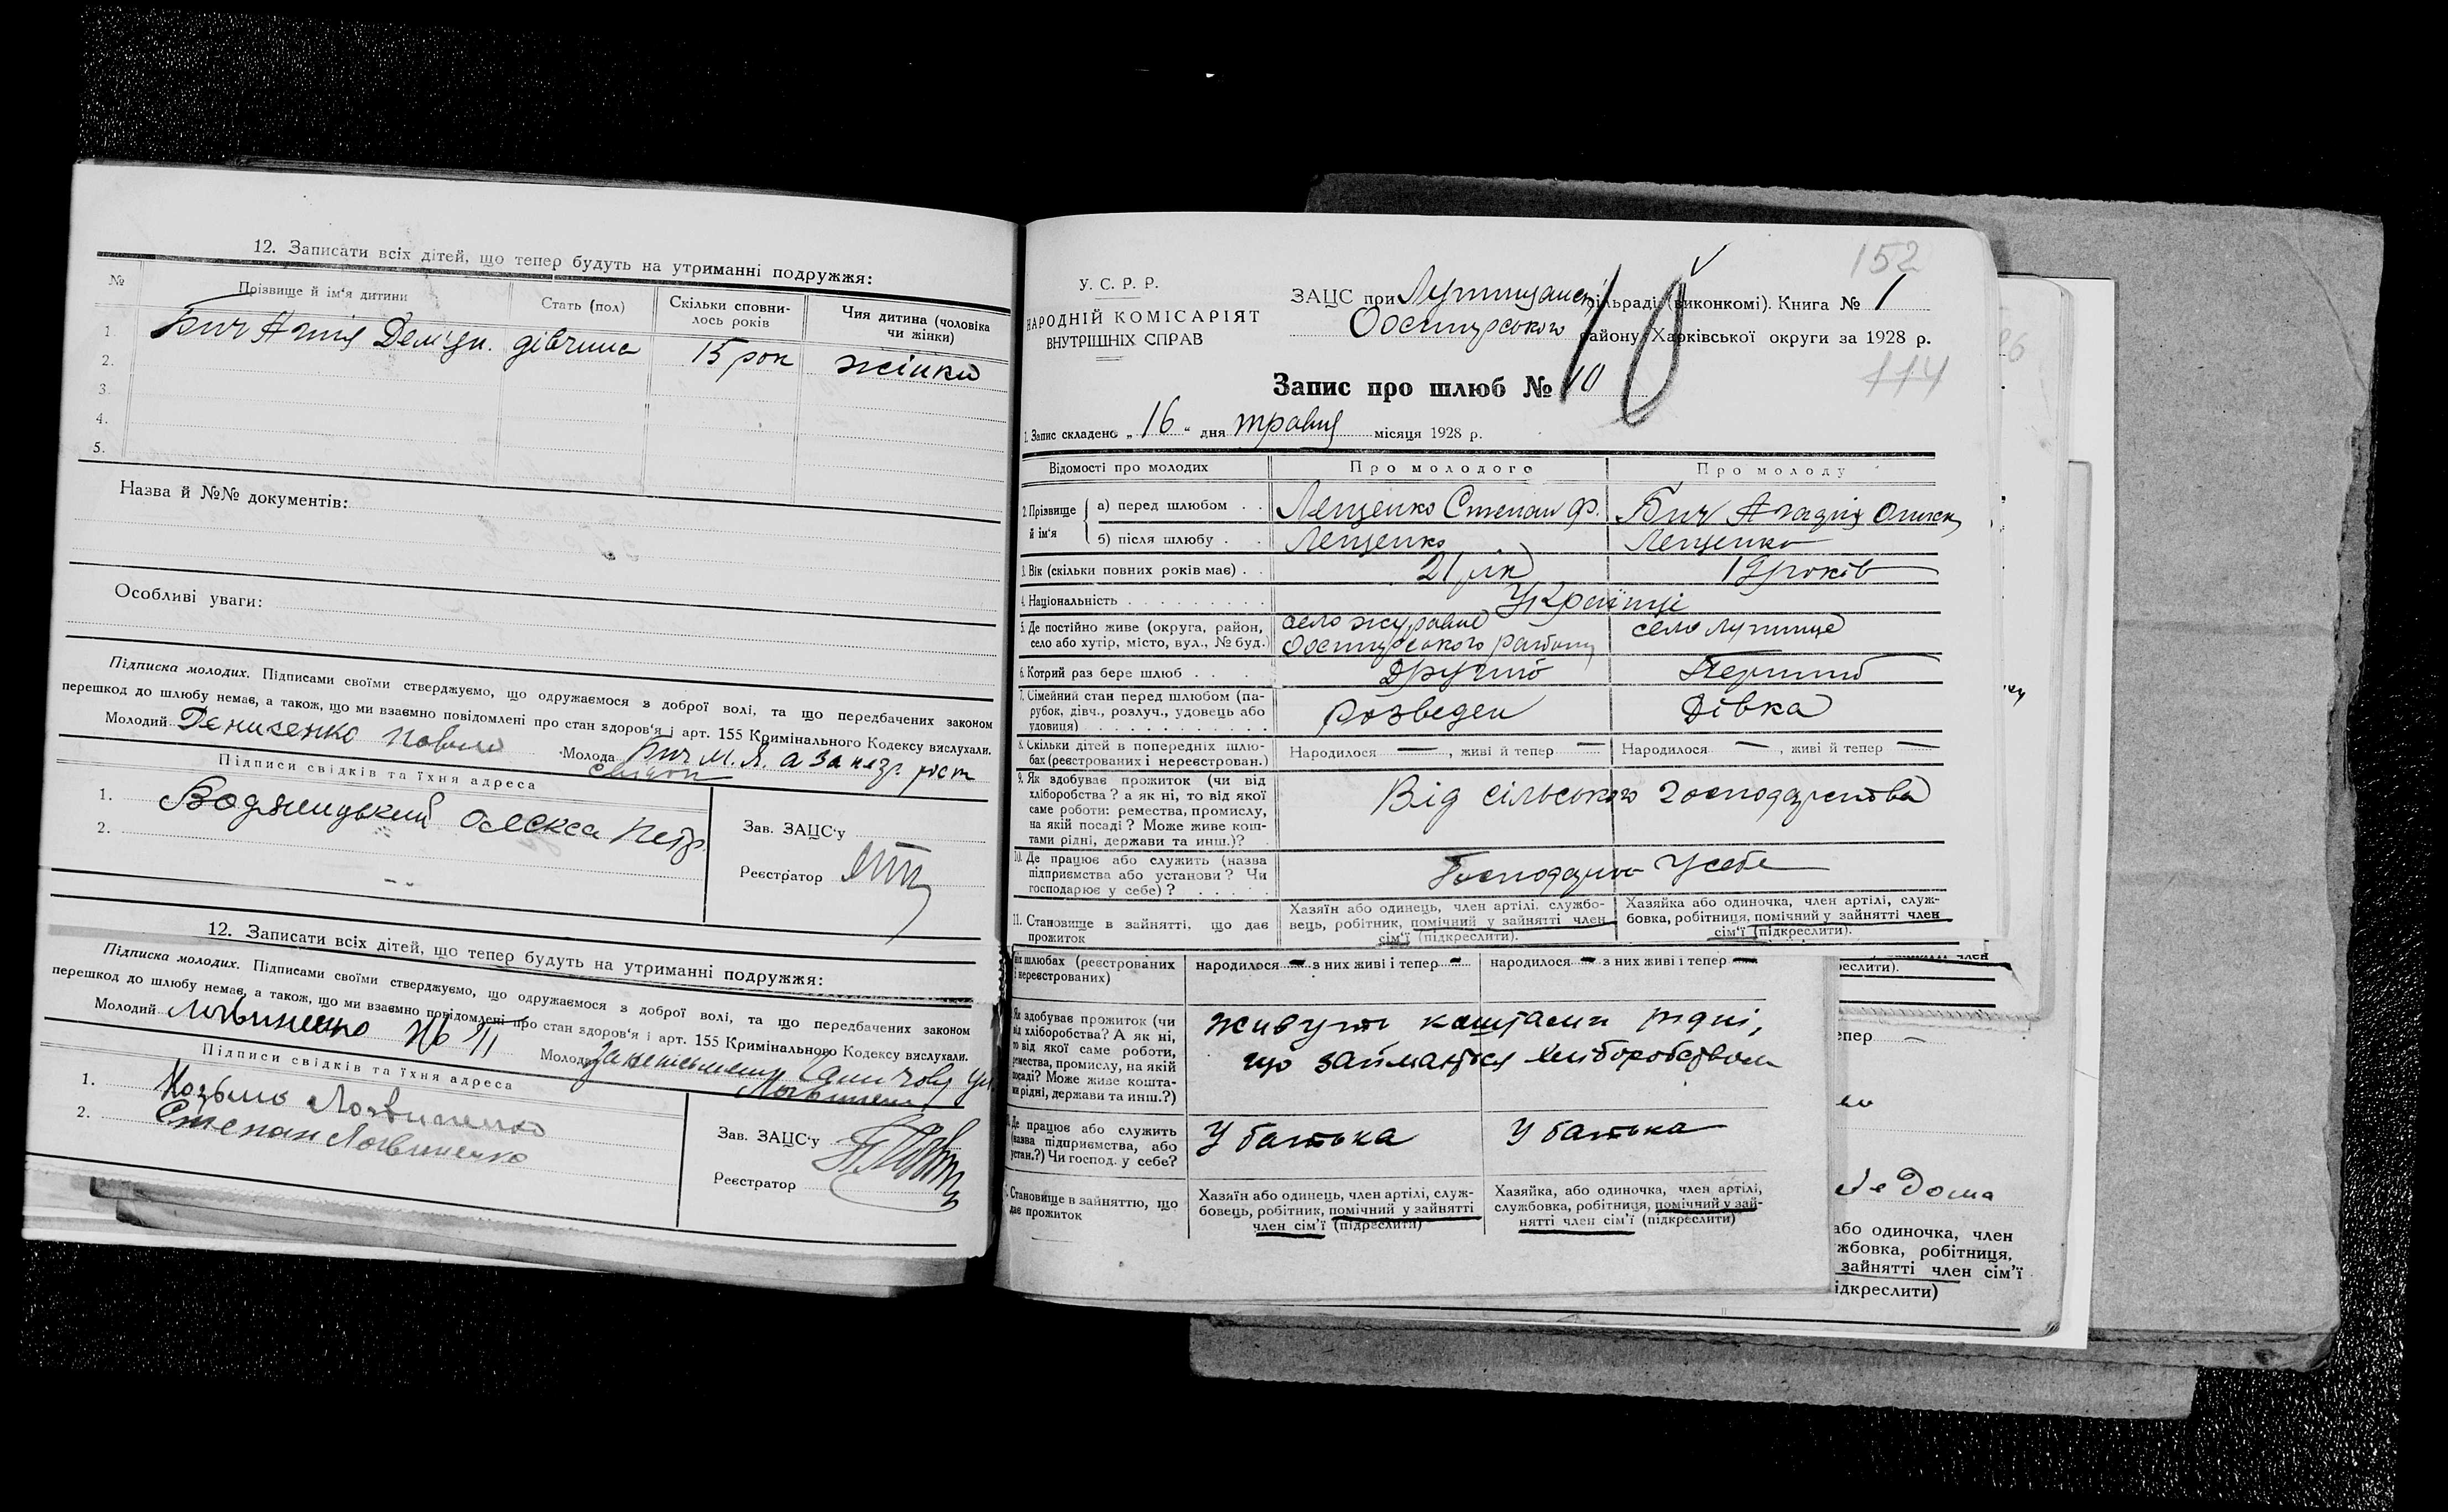 12. Записати всіх дітей, що тепер будуть на утриманні подружжя:
№ Прізвище й ім'я дитини Стать (пол) Скільки сповнилось років Чия дитина (чоловіка чи жінки)
1. Бич дівчина 15 рок жінки
2.
3.
4.
5.
Назва й №№ документів:
Особливі уваги:
Підписка молодих. Підписами своїми стверджуємо, що одружаємося з доброї волі, та що передбачених законом
перешкод до шлюбу немає, а також, що ми взаємно повідомлені про стан здоров'я і арт. 155 Кримінального Кодексу вислухали.
Молодий Денисенко Павло Молода Бич М. Я. а за
Підписи свідків та їхня адреса
1. Водяницький Олекса Петр.
2.
Зав. ЗАЦС'у
Реєстратор
12. Записати всіх дітей, що тепер будуть на утриманні подружжя:
Підписка молодих. Підписами своїми стверджуємо, що одружаємося з доброї волі, та що передбачених законом
перешкод до шлюбу немає, а також, що ми взаємно повідомлені про стан здоров'я і арт. 155 Кримінального Кодексу вислухали.
Молодий Логвиненко Молода
Підписи свідків та їхня адреса
1. Козьма Логвиненко
2. Степан Логвиненко
Зав. ЗАЦС'у
Реєстратор
152
У. С. Р. Р.
НАРОДНІЙ КОМІСАРІЯТ
ВНУТРІШНІХ СПРАВ
ЗАЦС при сільраді (виконкомі). Книга № 1
району Харківської округи за 1928 р.
10
114
Запис про шлюб № 10
1. Запис складено „16“ дня травня місяця 1928 р.
Відомості про молодих Про молодого Про молоду
2. Прізвище й ім'я
а) перед шлюбом Лещенко Степан Ф. Бич
б) після шлюбу Лещенко Лещенко
3. Вік (скільки повних років має) 21 рік 19 років
4. Національність Українці
5. Де постійно живе (округа, район, село або хутір, місто, вул., № буд.) село район село
6. Котрий раз бере шлюб Другий Перший
7. Сімейний стан перед шлюбом (парубок, дівч., розлуч., удовець або удовиця) розведен Дівка
8. Скільки дітей в попередніх шлюбах (реєстрованих і нереєстрован.) Народилося — , живі й тепер — Народилося — , живі й тепер —
9. Як здобуває прожиток (чи від хліборобства? а як ні, то від якої саме роботи: ремества, промислу, на якій посаді? Може живе коштами рідні, держави та инш.)? Від сільського господарства
10. Де працює або служить (назва підприємства або установи? Чи господарює у себе)? у себе
11. Становище в зайнятті, що дає прожиток
Хазяїн або одинець, член артілі, службовець, робітник, помічний у зайнятті член сім'ї (підкреслити).
Хазяйка або одиночка, член артілі, службовка, робітниця, помічний у зайнятті член сім'ї (підкреслити).
шлюбах (реєстрованих і нереєстрованих) народилося — з них живі і тепер — народилося — з них живі і тепер —
здобуває прожиток (чи від хліборобства? А як ні, то від якої саме роботи, ремества, промислу, на якій посаді? Може живе коштами рідні, держави та инш.?)
живуть коштами рідні,
що займається хліборобством
Де працює або служить (назва підприємства, або устан.?) Чи господ. у себе? У батька У батька
Становище в зайняттю, що дає прожиток
Хазяїн або одинець, член артілі, службовець, робітник, помічний у зайнятті член сім'ї (підреслити)
Хазяйка, або одиночка, член артілі, службовка, робітниця, помічний у зайнятті член сім'ї (підкреслити)
дома
або одиночка, член
жбовка, робітниця,
зайнятті член сім'ї
ідкреслити)